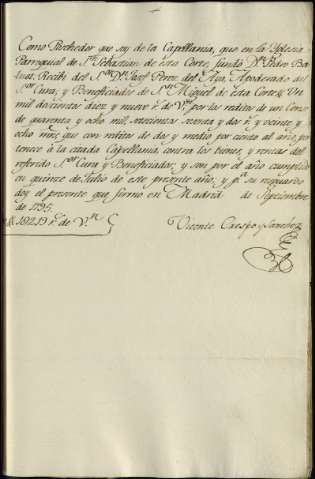 Como Pocheedor que soy de la Capellania, que en la Iglesia
Parroquial de Sn. Sebastian de esta Corte, fundó Dn. Pedro
Recibí del Sor. Dn. Josef Perez del Apoderado del
Sor. Cura, y Beneficiados de Sn. Miguel de esta Corte, Un
mil docientos diez y nueve rs. de Vn. por los reditos de un Censo
de quarenta y ocho mil, setecientos setenta y dos rs. y veinte y
ocho mrs. que con reditos de dos y medio por ciento al año, per
tenece à la citada Capellania contra los bienes y rentas del
referido Sor. Cura y Beneficiados; y son por el año cumplido
en quince de Julio de este presente año, y pa. su resguardo
doy el presente que firmo en Madrid de Septiembre
de 1795
1219 rs. de Vn.
Vicente Crespo y Sanchez